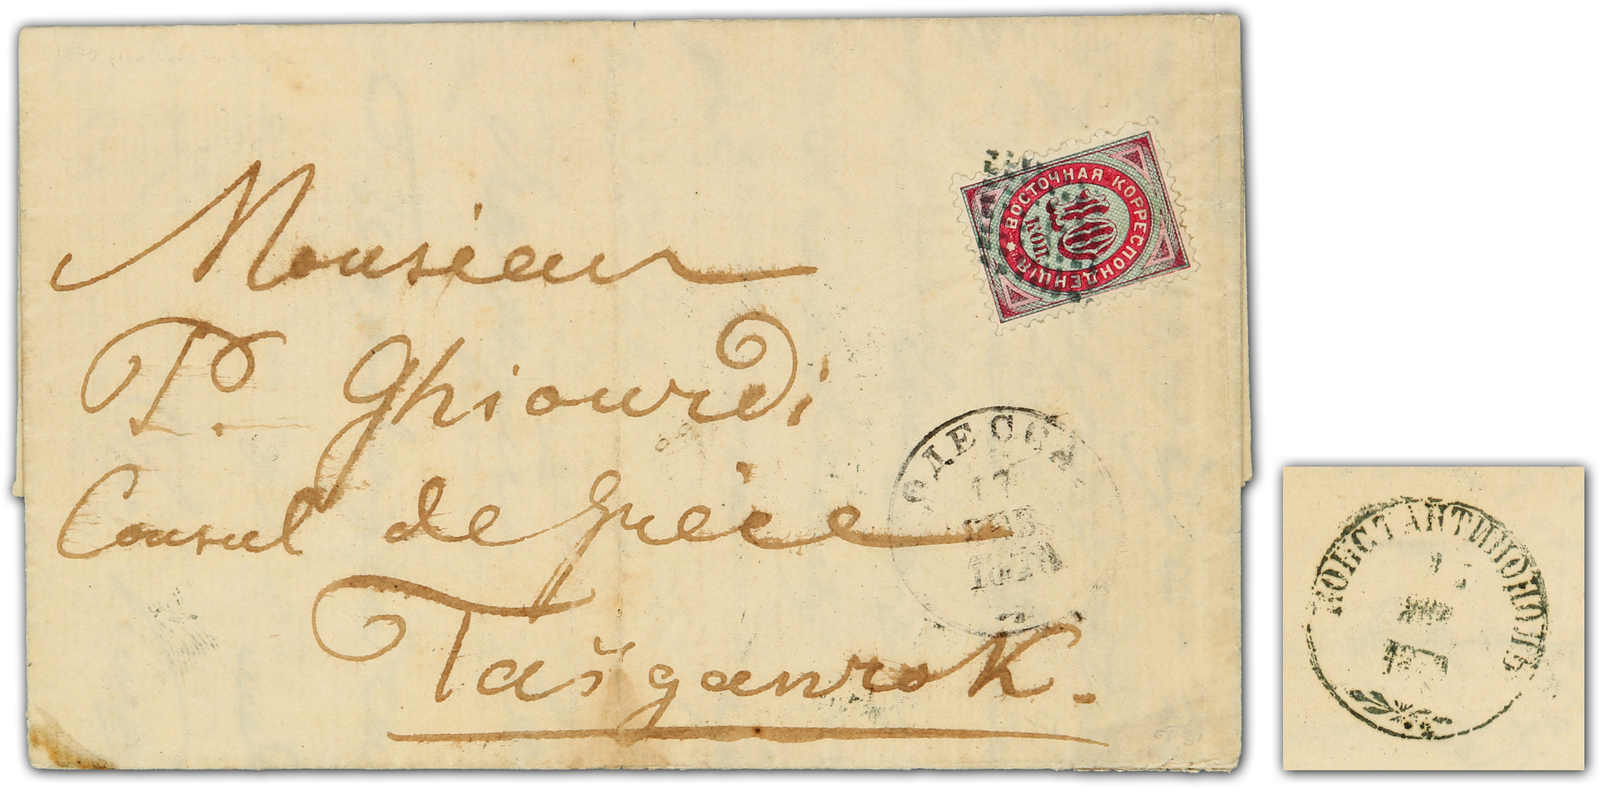 Monsieur
P. Ghiourdi
Consul de Grèce
Taïganrok.
ВОСТОЧНАЯ КОРРЕСПОНДЕНЦІЯ
10
КОП
ОДЕССА
17
КОНСТАНТИНОПОЛЬ